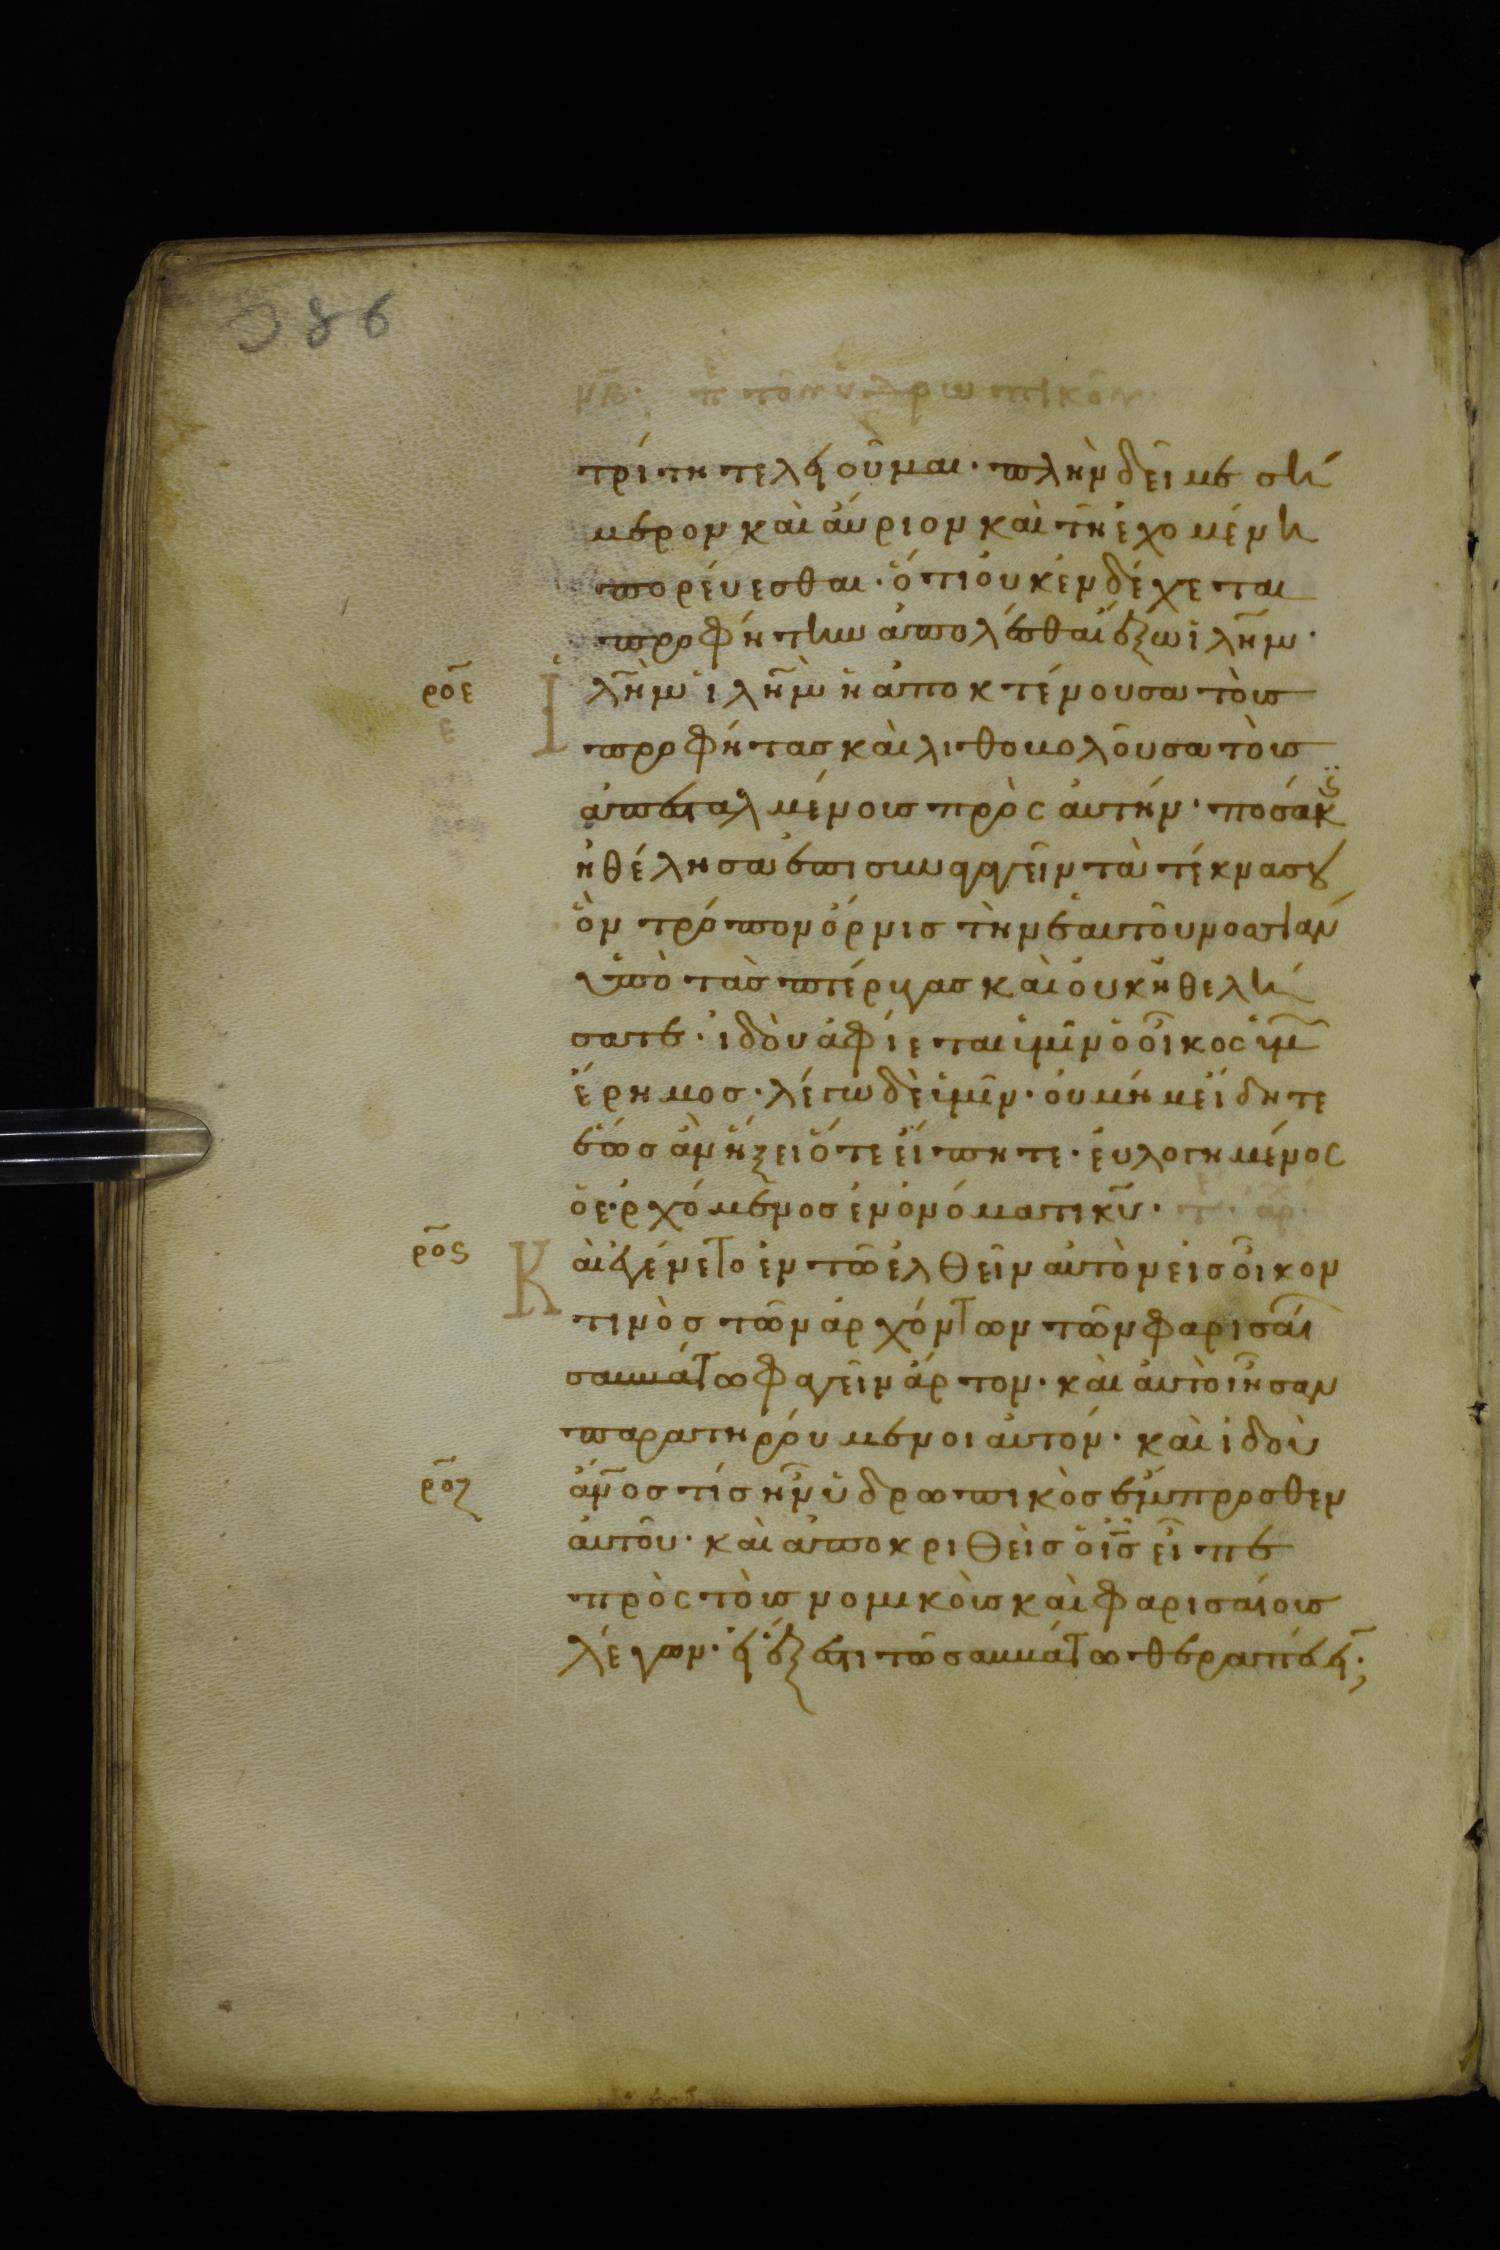 μη. π τὸν ὑδρωπικόν.
τρίτη τελειοῦμαι· πλὴν δεῖ με σή
μερον καὶ αὔριον καὶ τῆ ἐχομένη
πορεύεσθαι· ὅτι οὐκ ἐνδέχεται
προφήτην ἀπολέσθαι ἔξω ἰλῆμ·
ροε Ἰλῆμ ἰλῆμ ἡ ἀποκτένουσα τοὺς
ε προφήτας καὶ λιθοβολοῦσα τοὺς
ἀπεσταλμένους πρὸς αὐτήν· ποσάκις
ἠθέλησα ἐπισυναγαγεῖν τὰ τέκνα σου
ὃν τρόπον ὄρνις τὴν ἑαυτοῦ νοσσιὰν
ὑπὸ τὰς πτέρυγας καὶ οὐκ ἠθελή
σατε· ἰδοὺ ἀφίεται ὑμῖν ὁ οἶκος ὑμ
ἔρημος· λέγω δὲ ὑμῖν· οὐ μή με ἴδητε
ἕως ἂν ἥξει ὅτε εἴπητε· εὐλογημένος
ὁ ἐρχόμενος ἐν ὀνόματι κυ·
ροϛ Καὶ ἐγένετο ἐν τῶ ἐλθεῖν αὐτὸν εἰς οἶκον
τινὸς τῶν ἀρχόντων τῶν φαρισαί
σαββάτω φαγεῖν ἄρτον· καὶ αὐτοὶ ἦσαν
παρατηρούμενοι αὐτόν· καὶ ἰδοὺ
ροζ ἄνος τίς ἦν ὑδρωπικὸς ἔμπροσθεν
αὐτοῦ· καὶ ἀποκριθεὶς ὁ ις εἶπε
πρὸς τοὺς νομικοὺς καὶ φαρισαίους
λέγων· εἰ ἔξεστι τῶ σαββάτω θεραπεύειν;